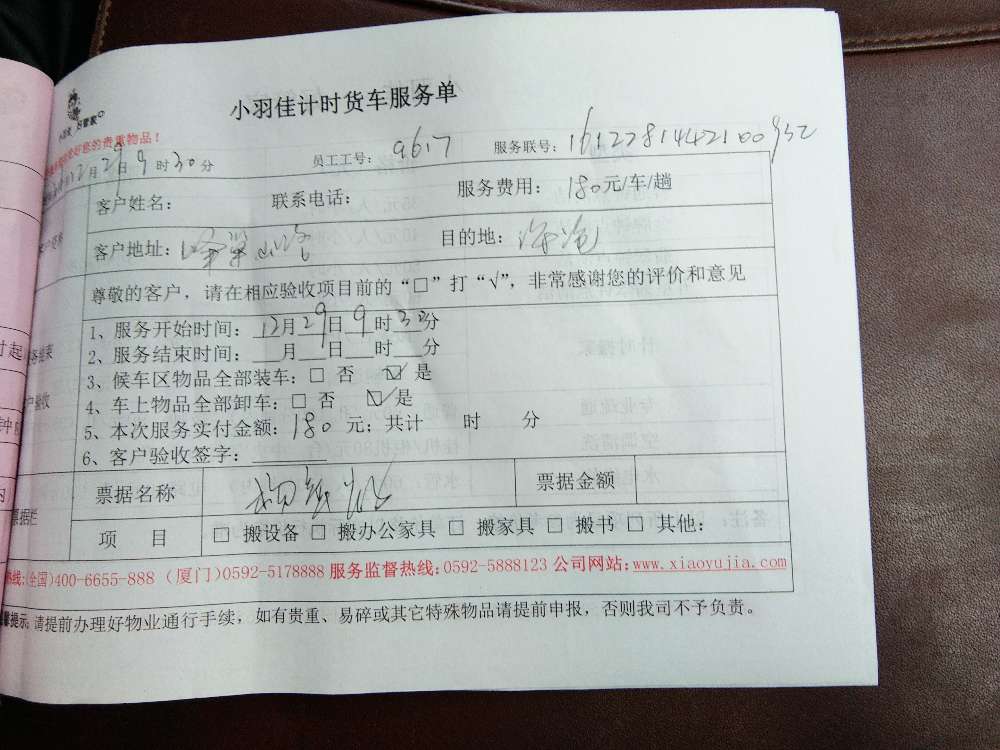 小羽佳计时货车服务单
好您的贵重物品！
12月29日9时30分 员工工号：9617 服务联号：1612281442100932
客户姓名： 联系电话： 服务费用：180元/车/趟
客户地址： 目的地：海沧
尊敬的客户，请在相应验收项目前的“□”打“√”，非常感谢您的评价和意见
1、服务开始时间：12月29日9时30分
2、服务结束时间：__月__日__时__分
3、候车区物品全部装车：□ 否 ☑ 是
4、车上物品全部卸车：□ 否 ☑ 是
5、本次服务实付金额：180 元；共计 时 分
6、客户验收签字：
票据名称 票据金额
项 目 □ 搬设备 □ 搬办公家具 □ 搬家具 □ 搬书 □ 其他：
热线:(全国)400-6655-888 (厦门)0592-5178888 服务监督热线:0592-5888123 公司网站:www.xiaoyujia.com
提示：请提前办理好物业通行手续，如有贵重、易碎或其它特殊物品请提前申报，否则我司不予负责。